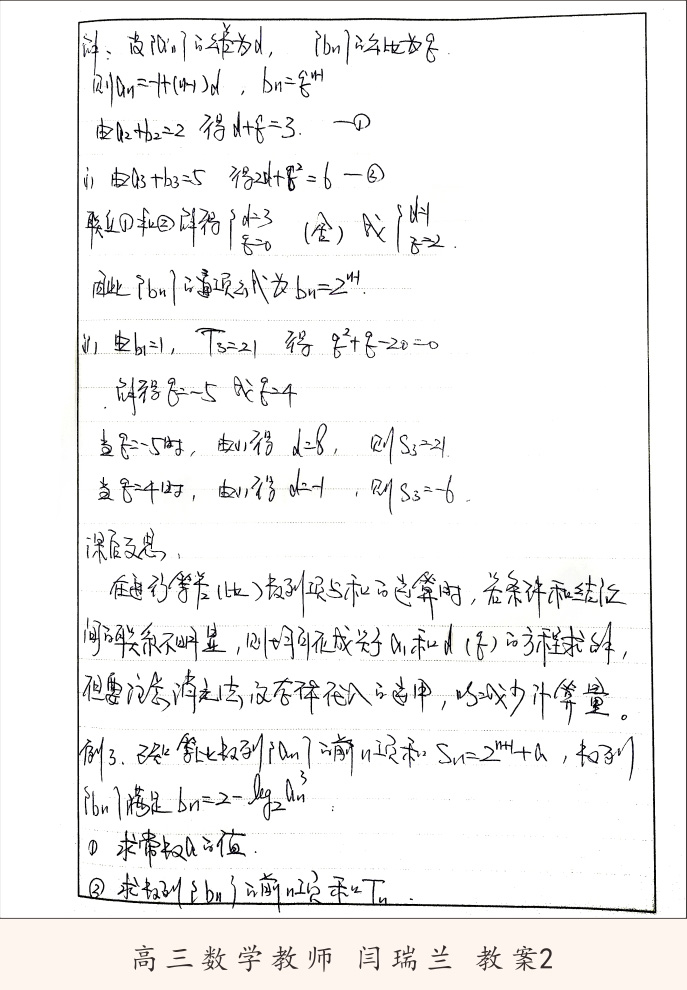 解：设{an}的公差为d，{bn}的公比为q.
则an=-1+(n-1)d，bn=q^{n-1}
由a2+b2=2 得d+q=3. —①
(1) 由a3+b3=5 得2d+q²=6 —②
联立①和②解得{d=3 q=0 (舍) 或{d=1 q=2.
因此{bn}的通项公式为bn=2^{n-1}.
(2) 由b1=1，T3=21 得 q²+q-20=0
解得q=-5 或q=4
当q=-5时，由(1)得 d=8，则S3=21.
当q=4时，由(1)得 d=-1，则S3=-6.
课后反思：
在进行等差(比)数列项与和的运算时，若条件和结论
间的联系不明显，则均可化成关于a1和d(q)的方程求解，
但要注意消元法及整体代入的运用，以减少计算量。
例3. 已知等比数列{an}的前n项和Sn=2^{n+1}+a，数列
{bn}满足bn=2-log₂an³.
① 求常数a的值.
② 求数列{bn}的前n项和Tn.
高三数学教师 闫瑞兰 教案2